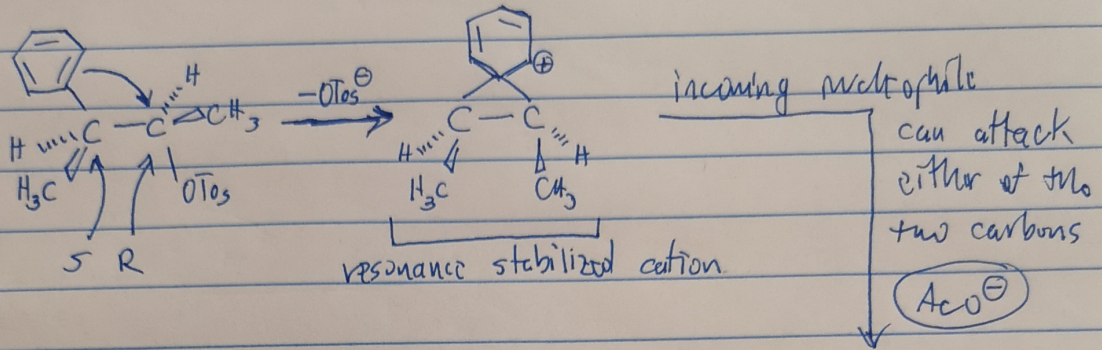 H
C — C CH3
H
H3C
OTos
S R
-OTos⊖
⊕
C — C
H H
H3C CH3
resonance stabilized cation
incoming nucleophile
can attack
either of the
two carbons
AcO⊖